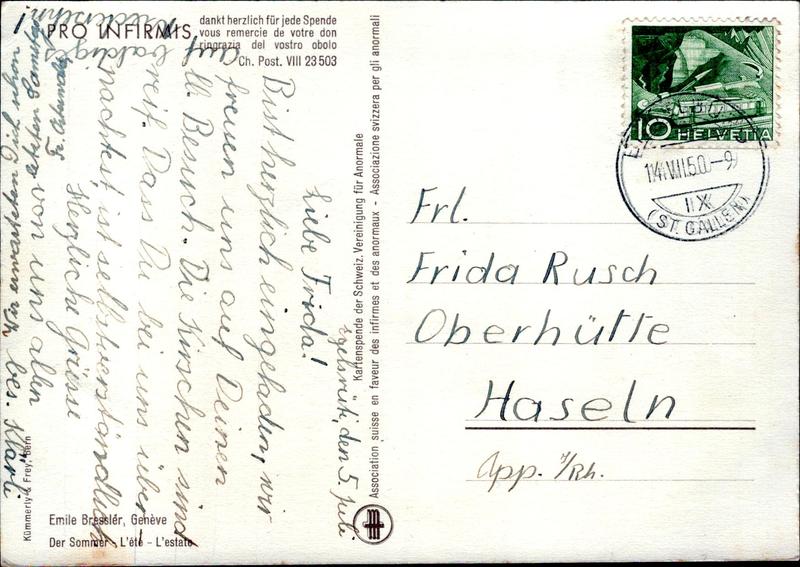 PRO INFIRMIS
dankt herzlich für jede Spende
vous remercie de votre don
ringrazia del vostro obolo
Ch. Post. VIII 23 503
10 HELVETIA
14.VII.50.-9
(ST. GALLEN)
Frl.
Frida Rusch
Oberhütte
Haseln
App. I/Rh.
Egelsrüti, den 5. Juli
Liebe Frida!
Bist herzlich eingeladen, wir
freuen uns auf Deinen
Besuch. Die Kirschen sind
reif. Dass Du bei uns über-
nachtest, ist selbstverständlich
Herzliche Grüsse
von uns allen
bes. Klärli
Wir erwarten Dich schon
letzten Samstag
auf baldiges
Kartenspende der Schweiz. Vereinigung für Anormale
Association suisse en faveur des infirmes et des anormaux - Associazione svizzera per gli anormali
Kümmerly & Frey, Bern
Emile Bressler, Genève
Der Sommer - L'été - L'estate